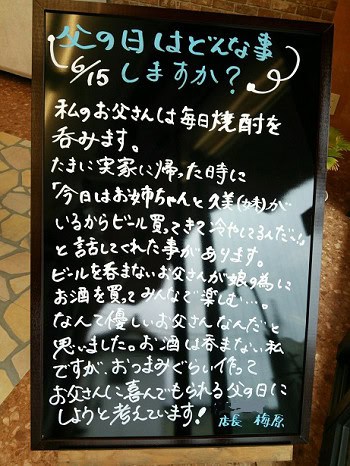 父の日はどんな事
6/15 しますか?
私のお父さんは毎日焼酎を
呑みます。
たまに実家に帰った時に
「今日はお姉ちゃんと久美(妹)が
いるからビール買ってきて冷やしてるんだ〜」
と話してくれた事があります。
ビールを呑まないお父さんが娘の為に
お酒を買ってみんなで楽しむ…。
なんて優しいお父さんなんだと
思いました。お酒は呑まない私
ですが、おつまみぐらい作って
お父さんに喜んでもられる父の日に
しようと考えています!
店長 梅原